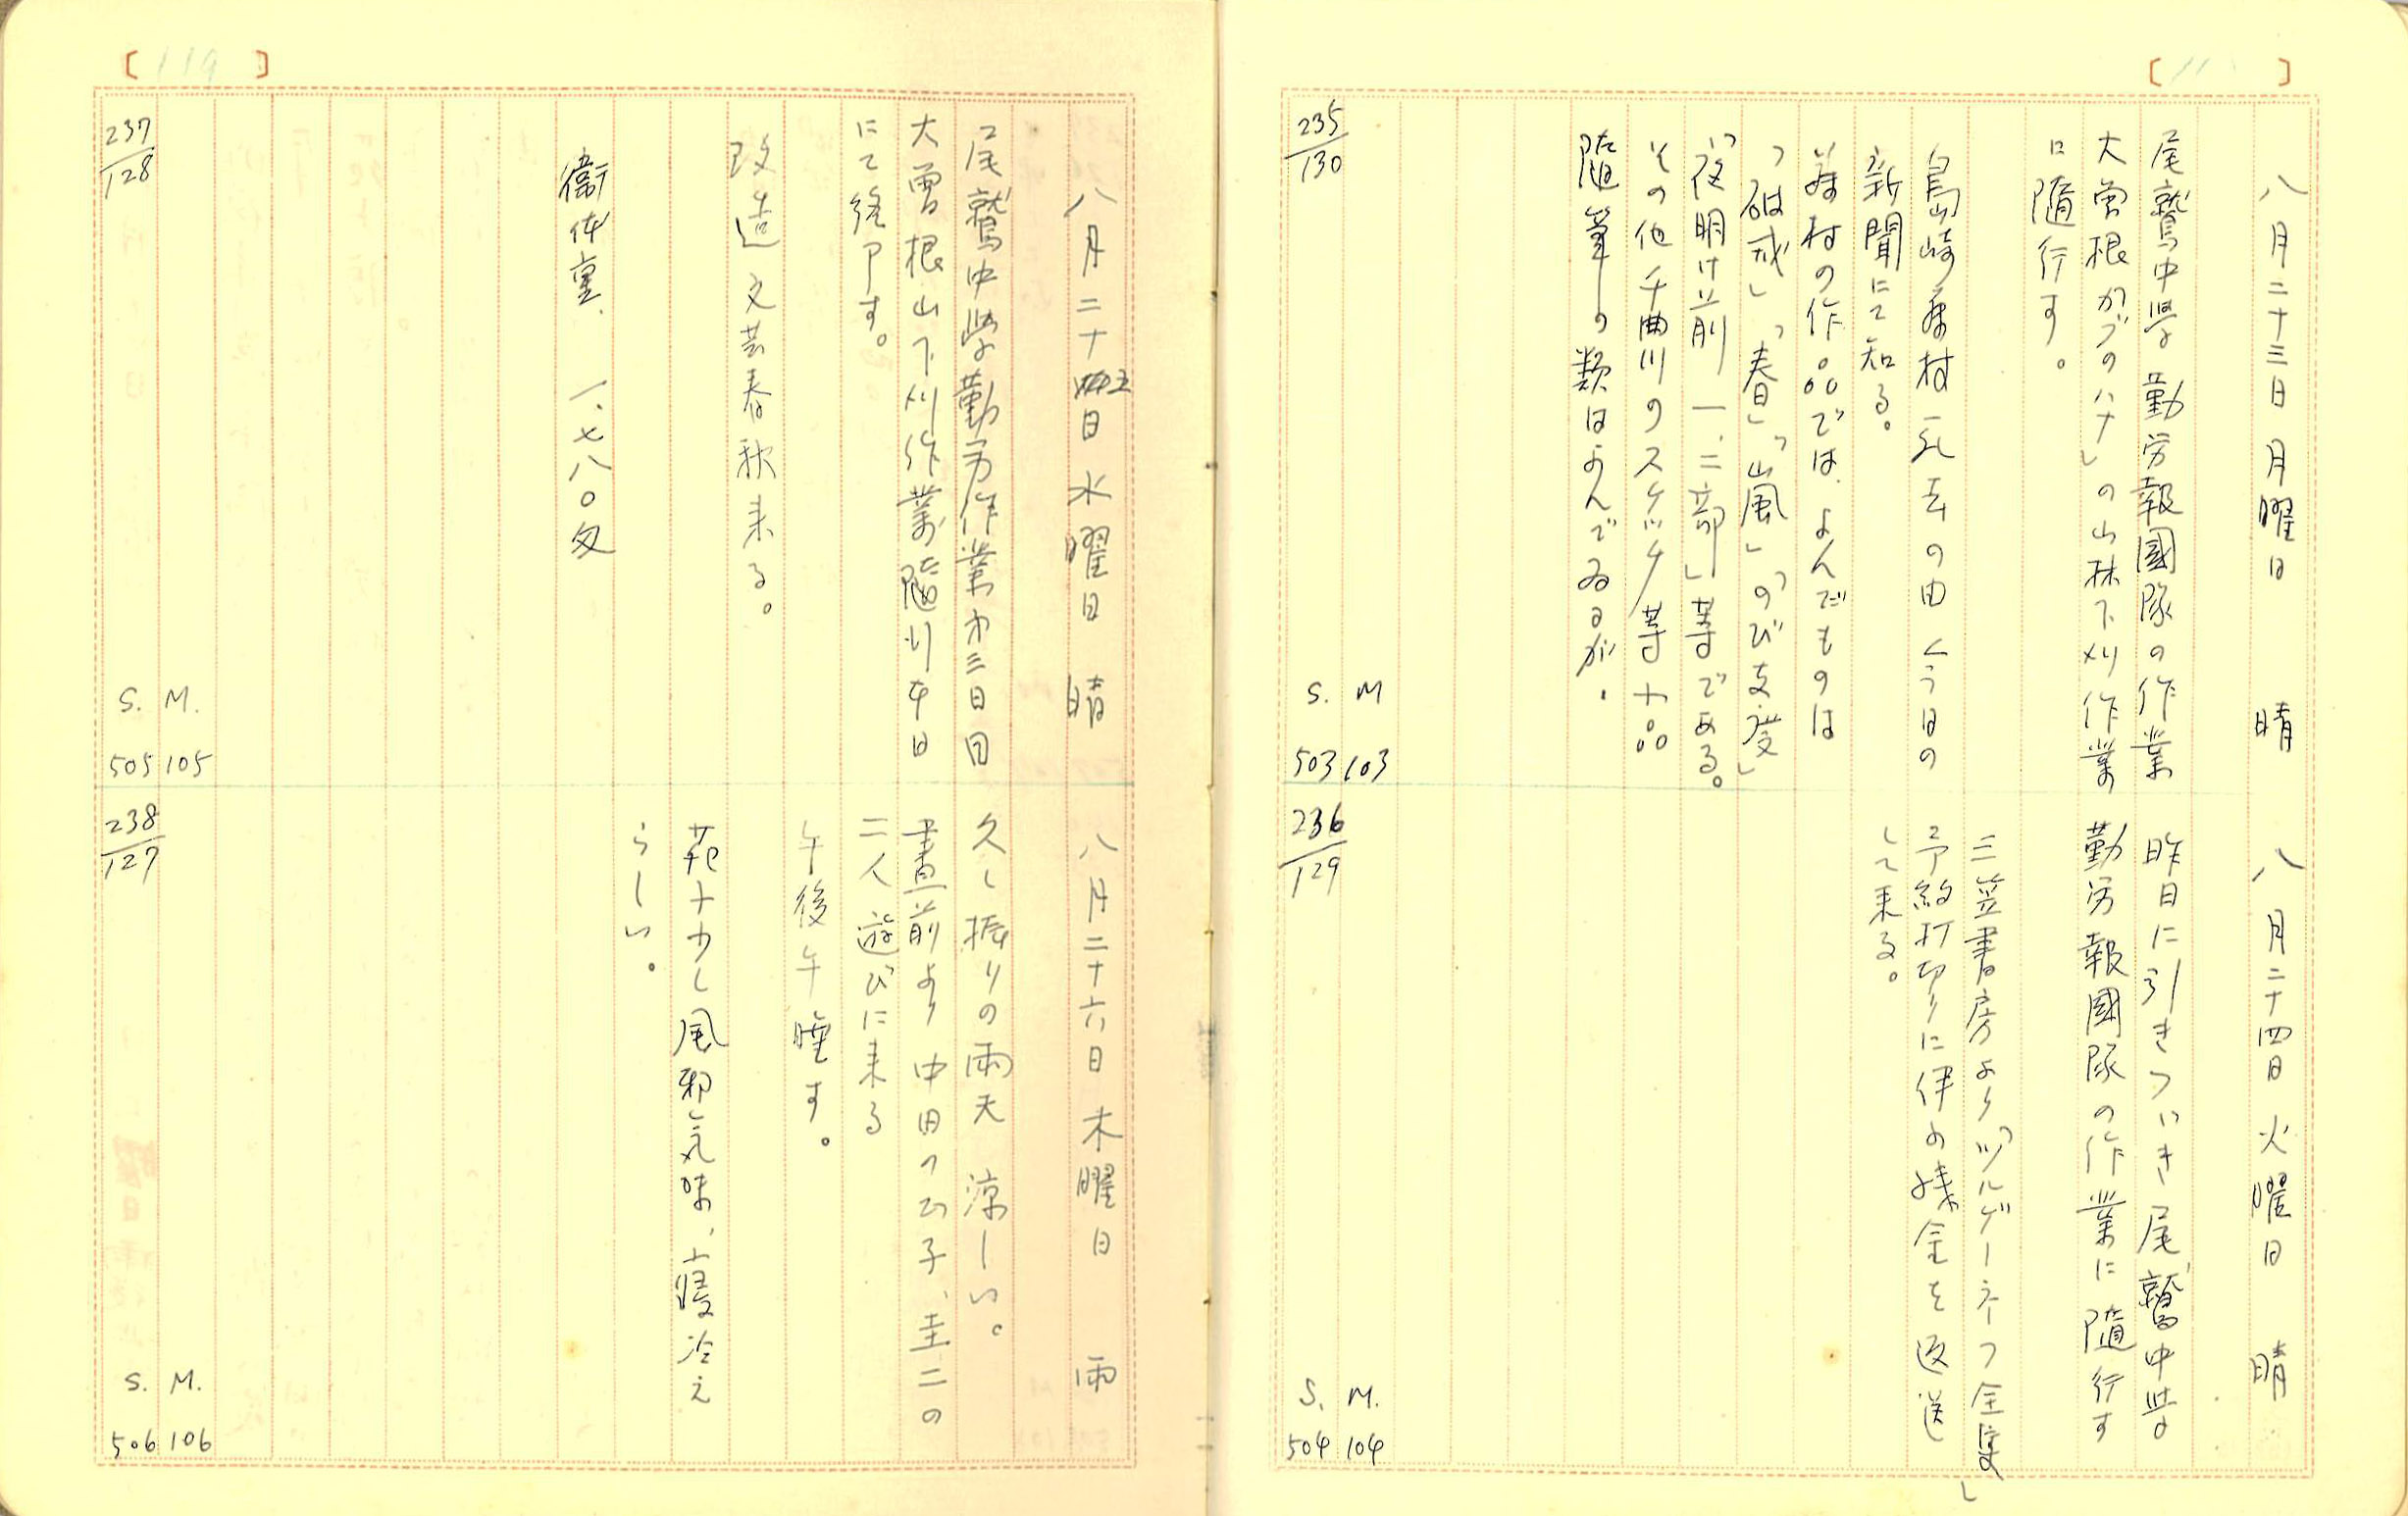 八月二十三日 月曜日 晴
尾鷲中学 勤労報國隊の作業
大曽根カブのハナ」の山林下刈作業
に隨行す。
島崎藤村 死去の由 今日の
新聞にて知る。
藤村の作品では、よんだものは
「破戒」「春」「嵐」「のび支度」
「夜明け前 一、二部」等である。
その他千曲川のスケッチ等 小品
隨筆の類はよんでゐるが、
235/130
S. M
503 103
八月二十四日 火曜日 晴
昨日に引きつゞき 尾鷲中学
勤労報國隊の作業に隨行す
三笠書房より「ツルゲーネフ全集」
予約打切りに伴ふ残金を返送
して来る。
236/129
S. M.
504 104
[119]
八月二十五日 水曜日 晴
尾鷲中學勤労作業 第三日目
大曽根山下刈作業隨行 本日
にて終了す。
改造 文芸春秋来る。
衛 体重、一、七八〇匁
237/128
S. M.
505 105
八月二十六日 木曜日 雨
久し振りの雨天 涼しい。
晝前より 中田の 子、圭二の
二人遊びに来る
午後午睡す。
苑子少し風邪気味、寝冷え
らしい。
238/127
S. M.
506 106